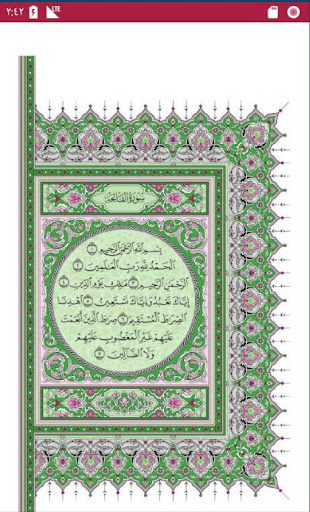 ٢:٤٢
LTE
سورة الفاتحة
بِسْمِ اللَّهِ الرَّحْمَٰنِ الرَّحِيمِ ١
الْحَمْدُ لِلَّهِ رَبِّ الْعَالَمِينَ ٢
الرَّحْمَٰنِ الرَّحِيمِ ٣ مَالِكِ يَوْمِ الدِّينِ ٤
إِيَّاكَ نَعْبُدُ وَإِيَّاكَ نَسْتَعِينُ ٥ اهْدِنَا
الصِّرَاطَ الْمُسْتَقِيمَ ٦ صِرَاطَ الَّذِينَ أَنْعَمْتَ
عَلَيْهِمْ غَيْرِ الْمَغْضُوبِ عَلَيْهِمْ
وَلَا الضَّالِّينَ ٧